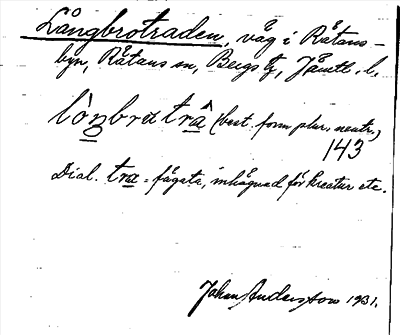 Långbrotraden, väg i Råtans-
byn, Råtans sn, Bergs tg, Jämtl. l.
lòŋbratrâ (best. form plur. neutr.)
143
Dial. tra = fägata, inhägnad för kreatur etc.
Johan Andersson 1931.